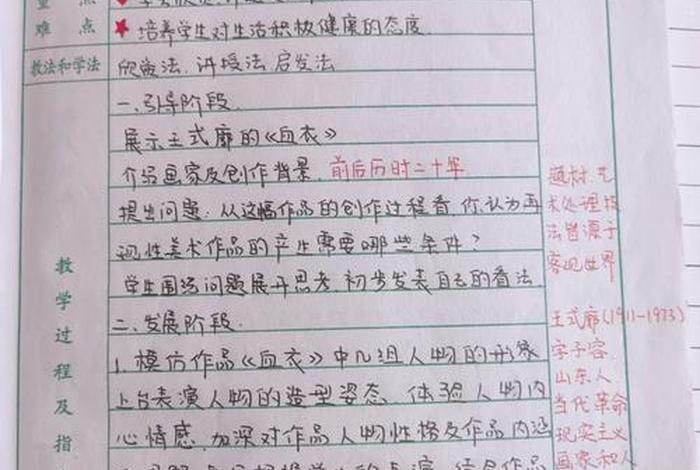 难 点
★培养学生对生活积极健康的态度.
教法和学法
欣赏法、讲授法、启发法
一、引导阶段.
展示王式廓的《血衣》
介绍画家及创作背景.
前后历时二十年
提出问题:从这幅作品的创作过程看,你认为再
现性美术作品的产生需要哪些条件?
学生围绕问题展开思考,初步发表自己的看法.
二、发展阶段.
1.模仿作品《血衣》中几组人物的形象
上台表演人物的造型姿态、体验人物内
心情感.加深对作品人物性格及作品内涵
教
学
过
程
及
指
题材、艺
术处理技
法皆源于
客观世界
王式廓(1911-1973)
字子容.
山东人.
当代革命
现实主义
画家和人